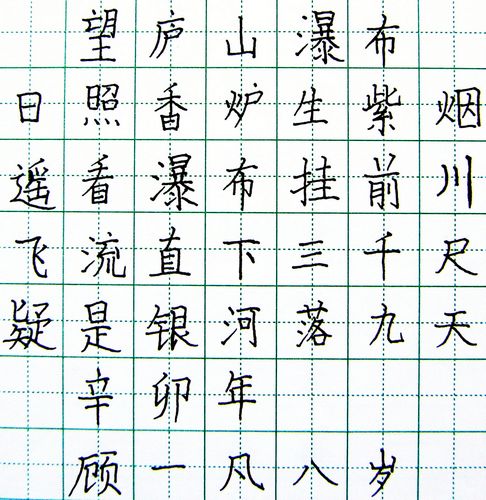 望庐山瀑布
日照香炉生紫烟
遥看瀑布挂前川
飞流直下三千尺
疑是银河落九天
辛卯年
顾一凡八岁